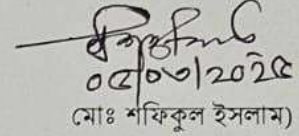 ০৫/০৩/২০২৫
(মোঃ শফিকুল ইসলাম)